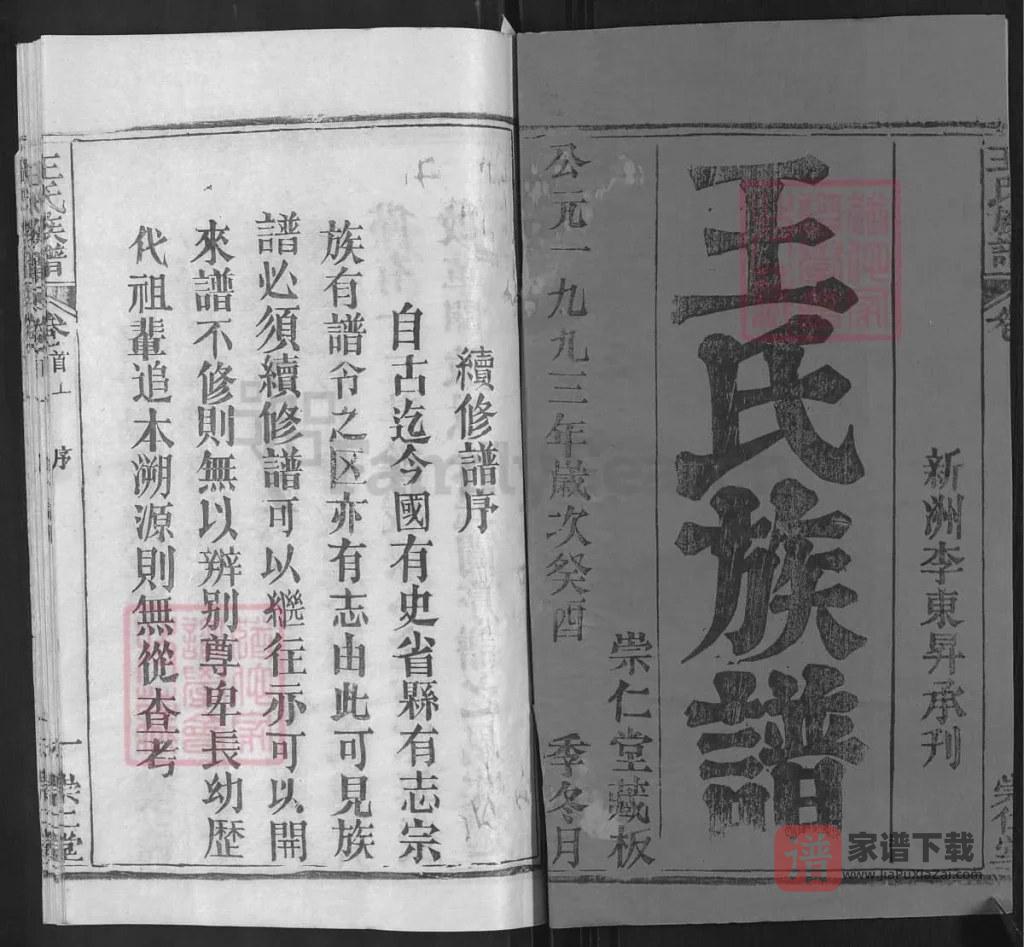 新洲李東昇承刊
王氏族譜
崇仁堂藏板
公元一九九三年歲次癸酉 季冬月
續修譜序
自古迄今國有史省縣有志宗
族有譜令之区亦有志由此可見族
譜必須續修譜可以繼往亦可以開
來譜不修則無以辨别尊卑長幼歷
代祖輩追本溯源則無從查考
王氏族譜 卷首上 序 一 崇仁堂
家谱下载
www.jiapuxiazai.com
谱